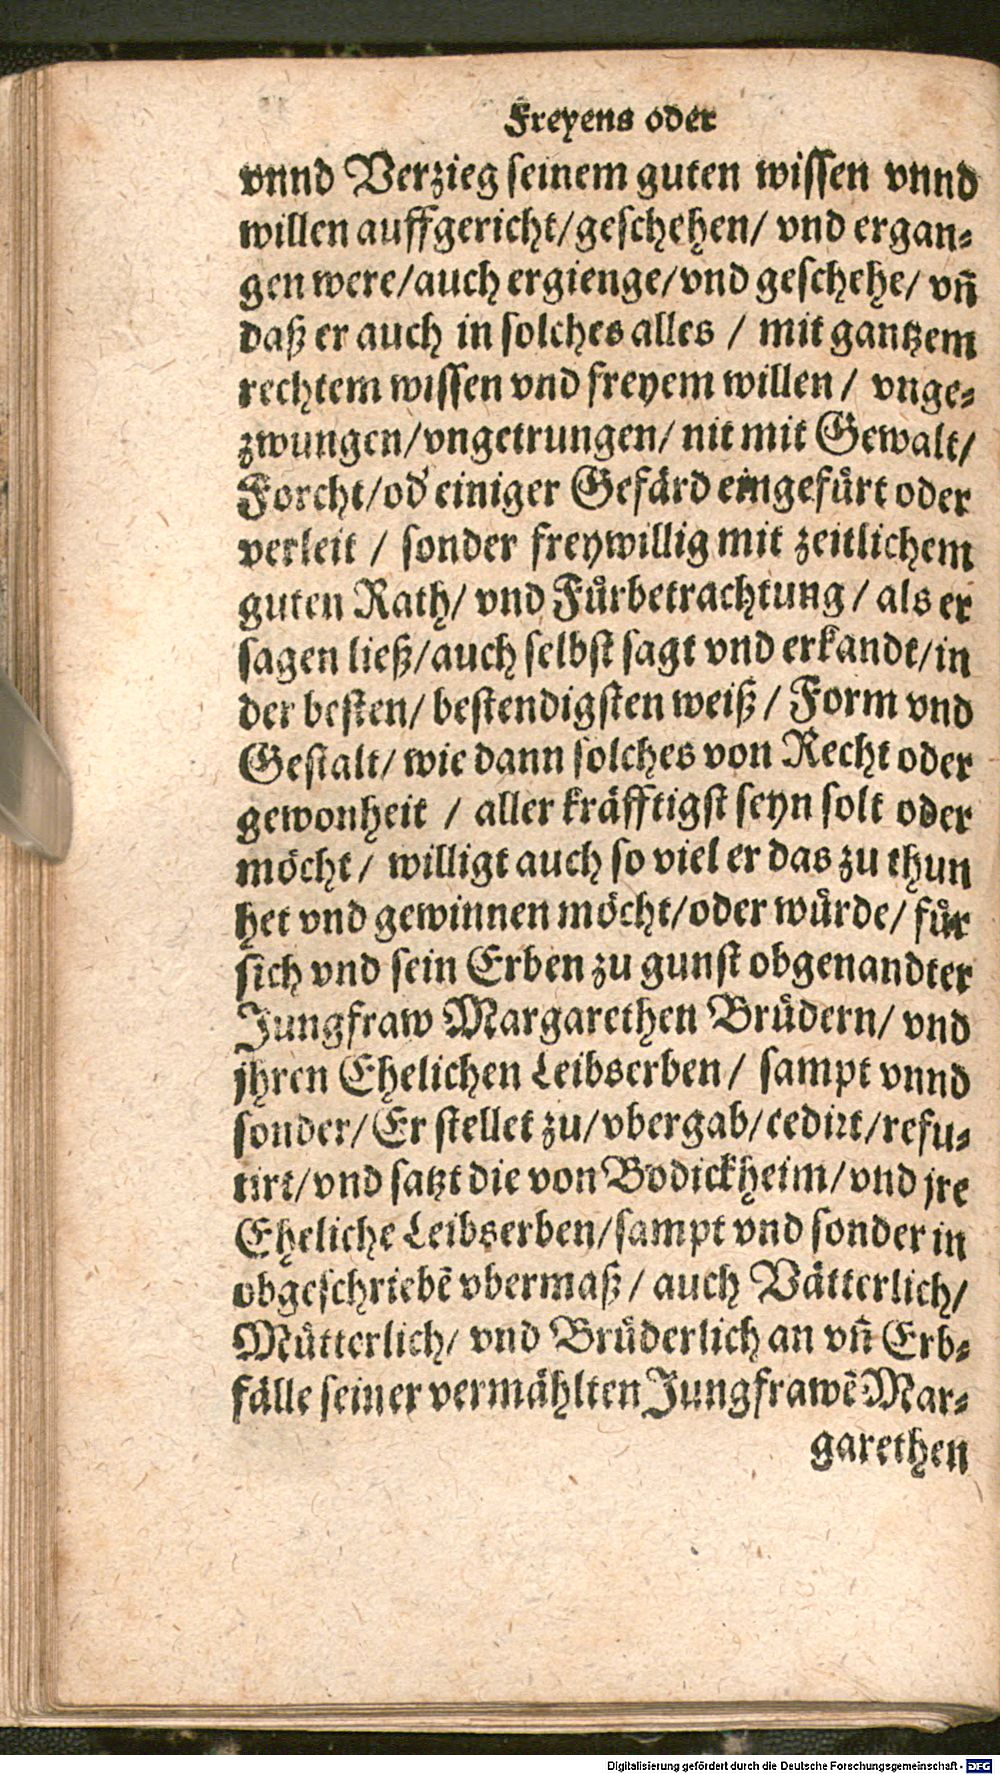 Freyens oder
vnnd Verzieg seinem guten wissen vnnd
willen auffgericht/geschehen/ vnd ergan⸗
gen were/auch ergienge/vnd geschehe/ vñ
daß er auch in solches alles / mit gantzem
rechtem wissen vnd freyem willen / vnge⸗
zwungen/vngetrungen/ nit mit Gewalt/
Forcht/od' einiger Gefärd eingefürt oder
verleit / sonder freywillig mit zeitlichem
guten Rath/ vnd Fürbetrachtung / als er
sagen ließ/auch selbst sagt vnd erkandt/in
der besten/ bestendigsten weiß / Form vnd
Gestalt/ wie dann solches von Recht oder
gewonheit / aller kräfftigst seyn solt oder
möcht / willigt auch so viel er das zu thun
het vnd gewinnen möcht/oder würde/ für
sich vnd sein Erben zu gunst obgenandter
Jungfraw Margarethen Brüdern/ vnd
jhren Ehelichen Leibserben / sampt vnnd
sonder/ Er stellet zu/vbergab/cedirt/refu⸗
tirt/vnd satzt die von Bodickheim/vnd jre
Eheliche Leibserben/sampt vnd sonder in
obgeschriebẽ vbermaß / auch Vätterlich/
Mütterlich/ vnd Brüderlich an vñ Erb⸗
fälle seiner vermählten Jungfrawẽ Mar⸗
garethen
Digitalisierung gefördert durch die Deutsche Forschungsgemeinschaft - DFG